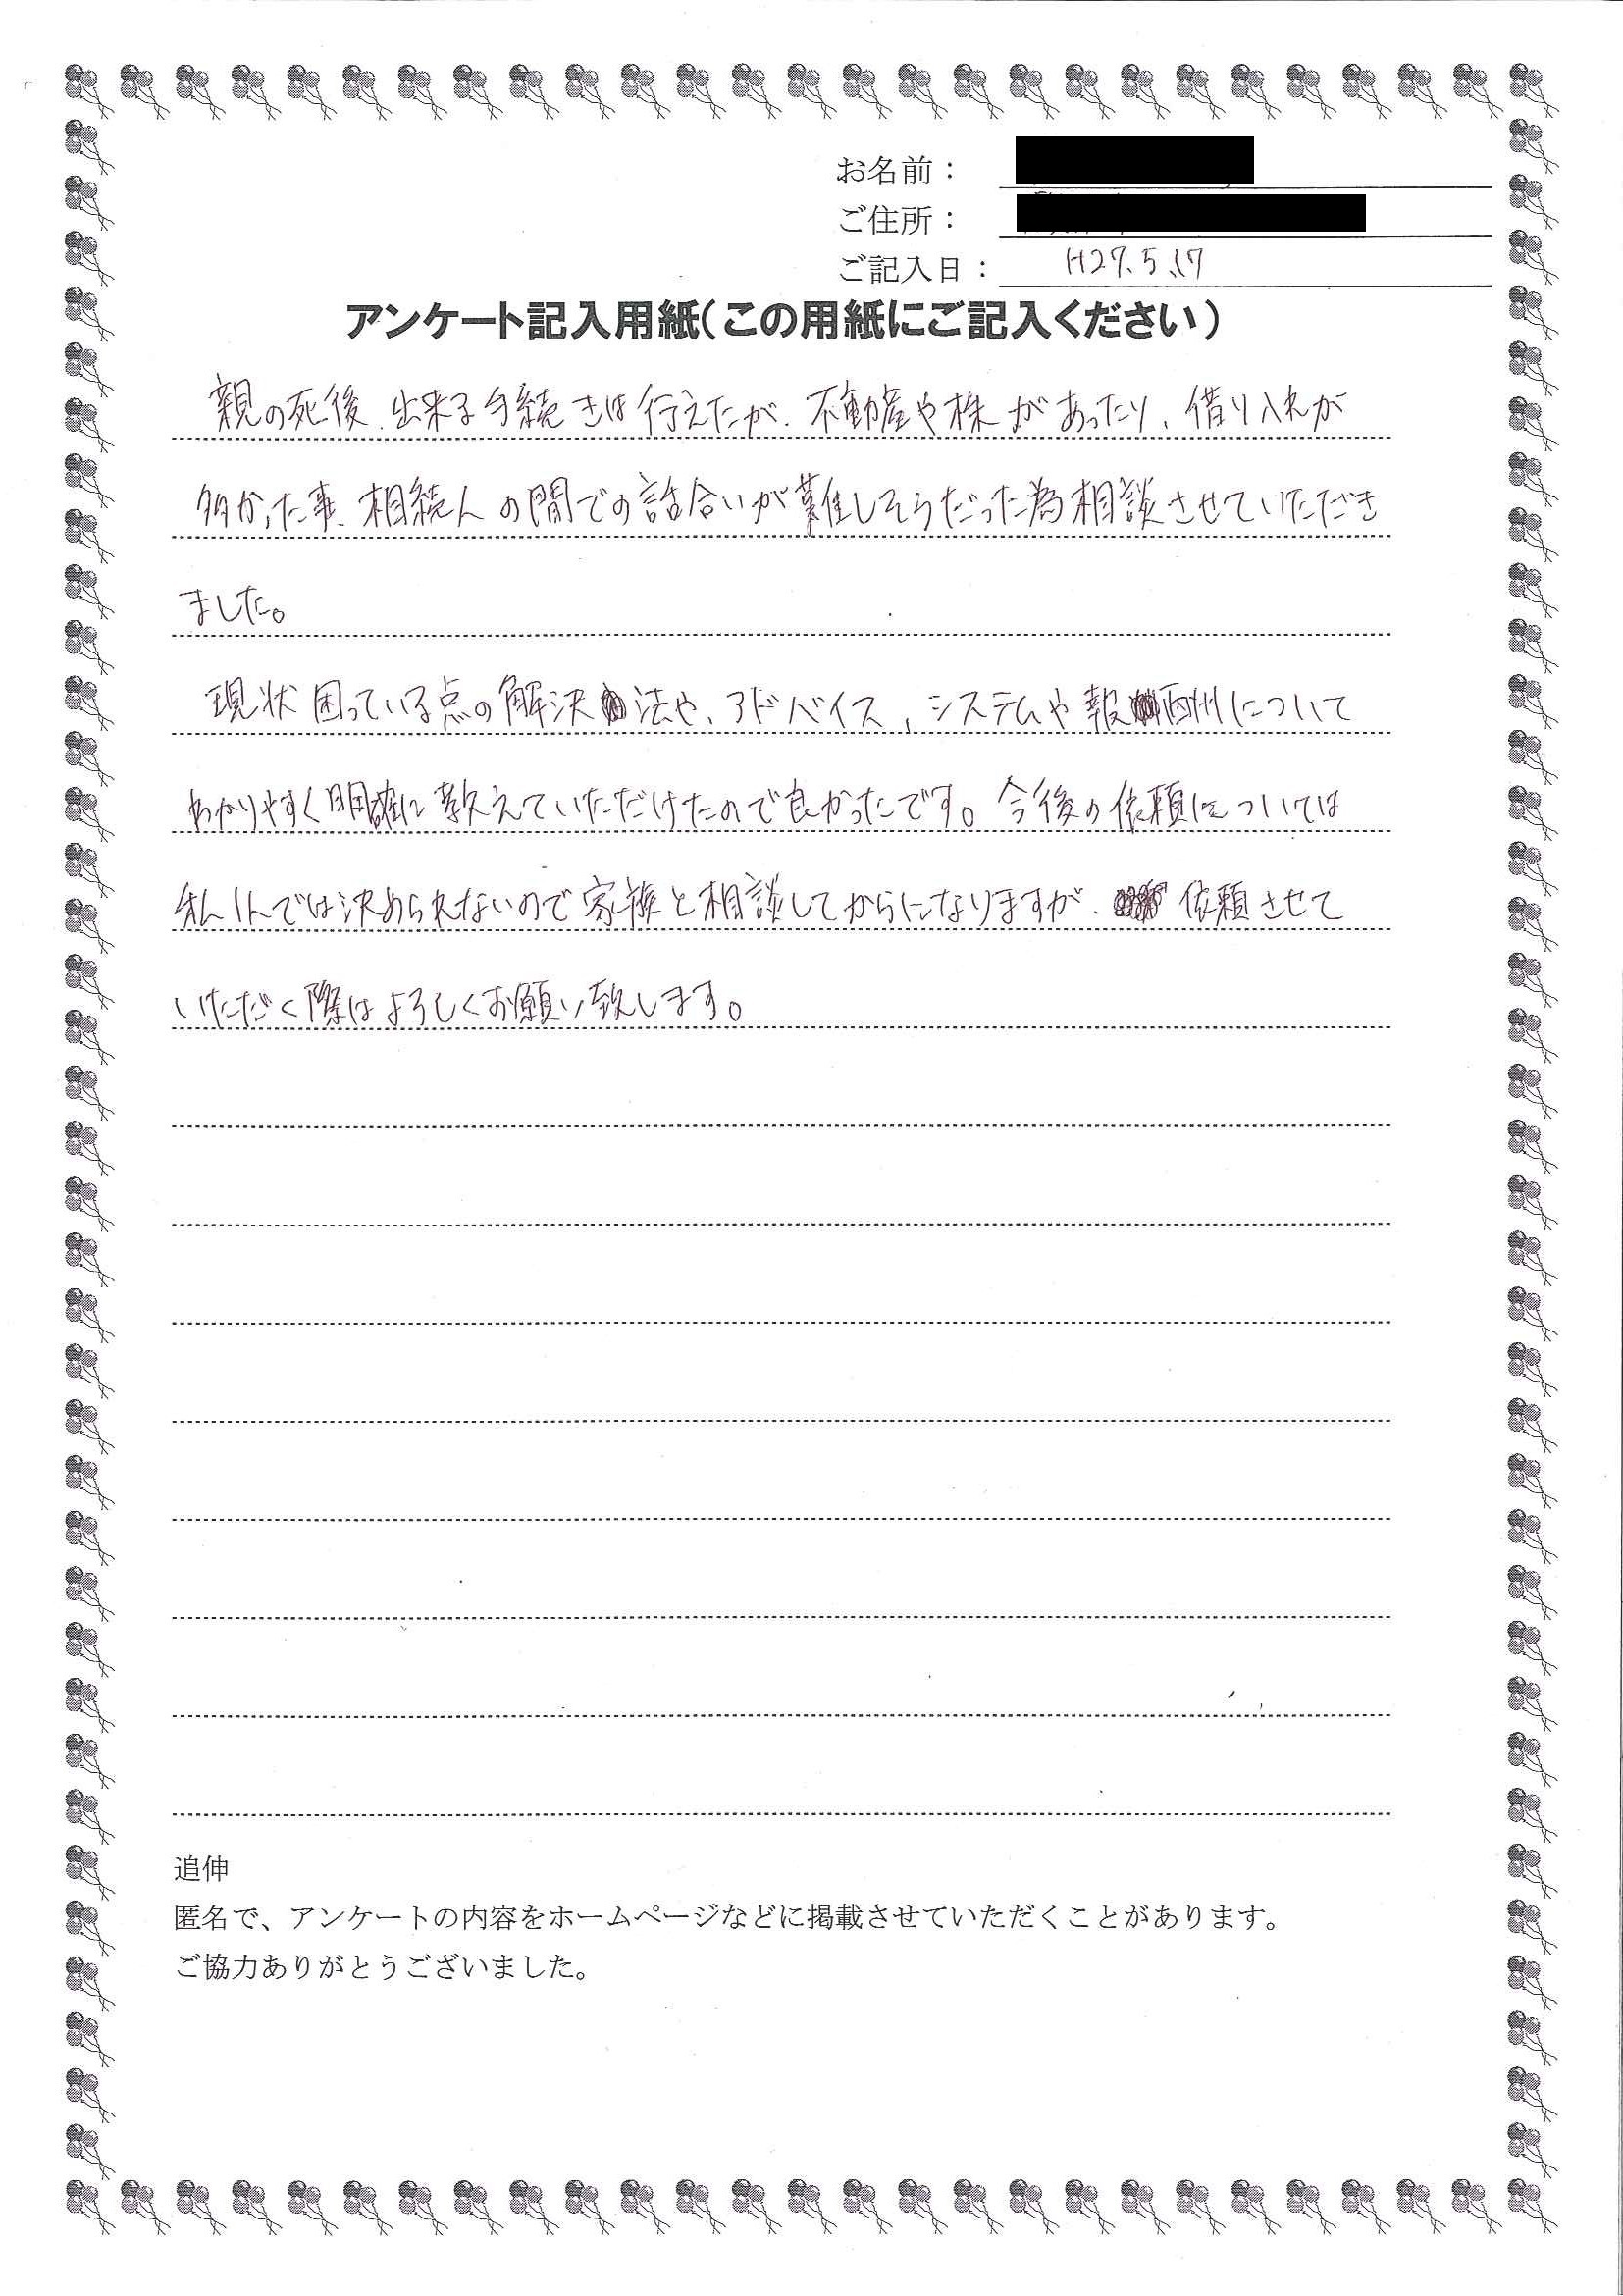 お名前：
ご住所：
ご記入日： H27.5.17
アンケート記入用紙（この用紙にご記入ください）
親の死後、出来る手続きは行えたが、不動産や株があったり、借り入れが
多かった事、相続人の間での話合いが難しそうだった為相談させていただき
ました。
現状困っている点の解決法や、アドバイス、システムや報酬について
わかりやすく明確に教えていただけたので良かったです。今後の依頼については
私1人では決められないので家族と相談してからになりますが、依頼させて
いただく際はよろしくお願い致します。
追伸
匿名で、アンケートの内容をホームページなどに掲載させていただくことがあります。
ご協力ありがとうございました。